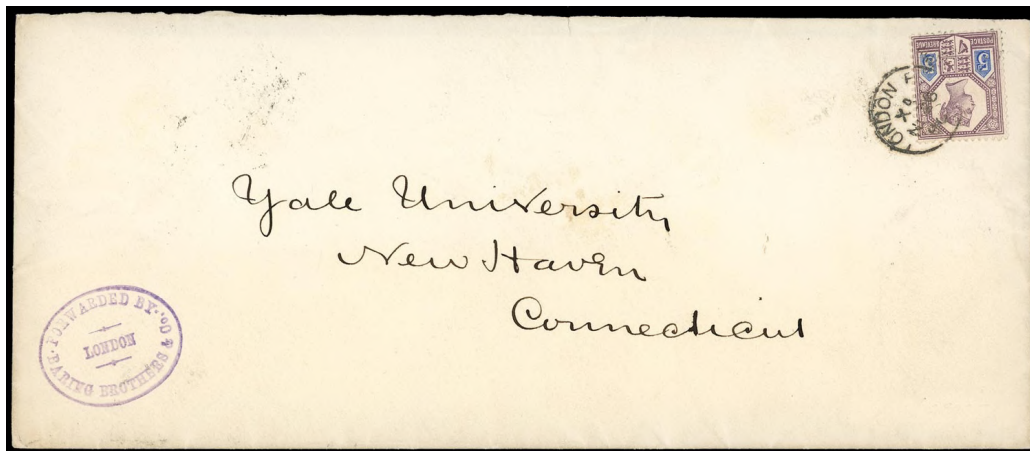 POSTAGE & REVENUE
5 5
LONDON
X
Yale University
New Haven
Connecticut
FORWARDED BY
LONDON
BARING BROTHERS & Co.